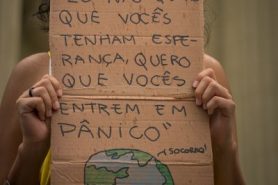 EU NÃO QUERO
QUE VOCÊS
TENHAM ESPE-
RANÇA, QUERO
QUE VOCÊS
ENTREM EM
PÂNICO"
SOCORRO!